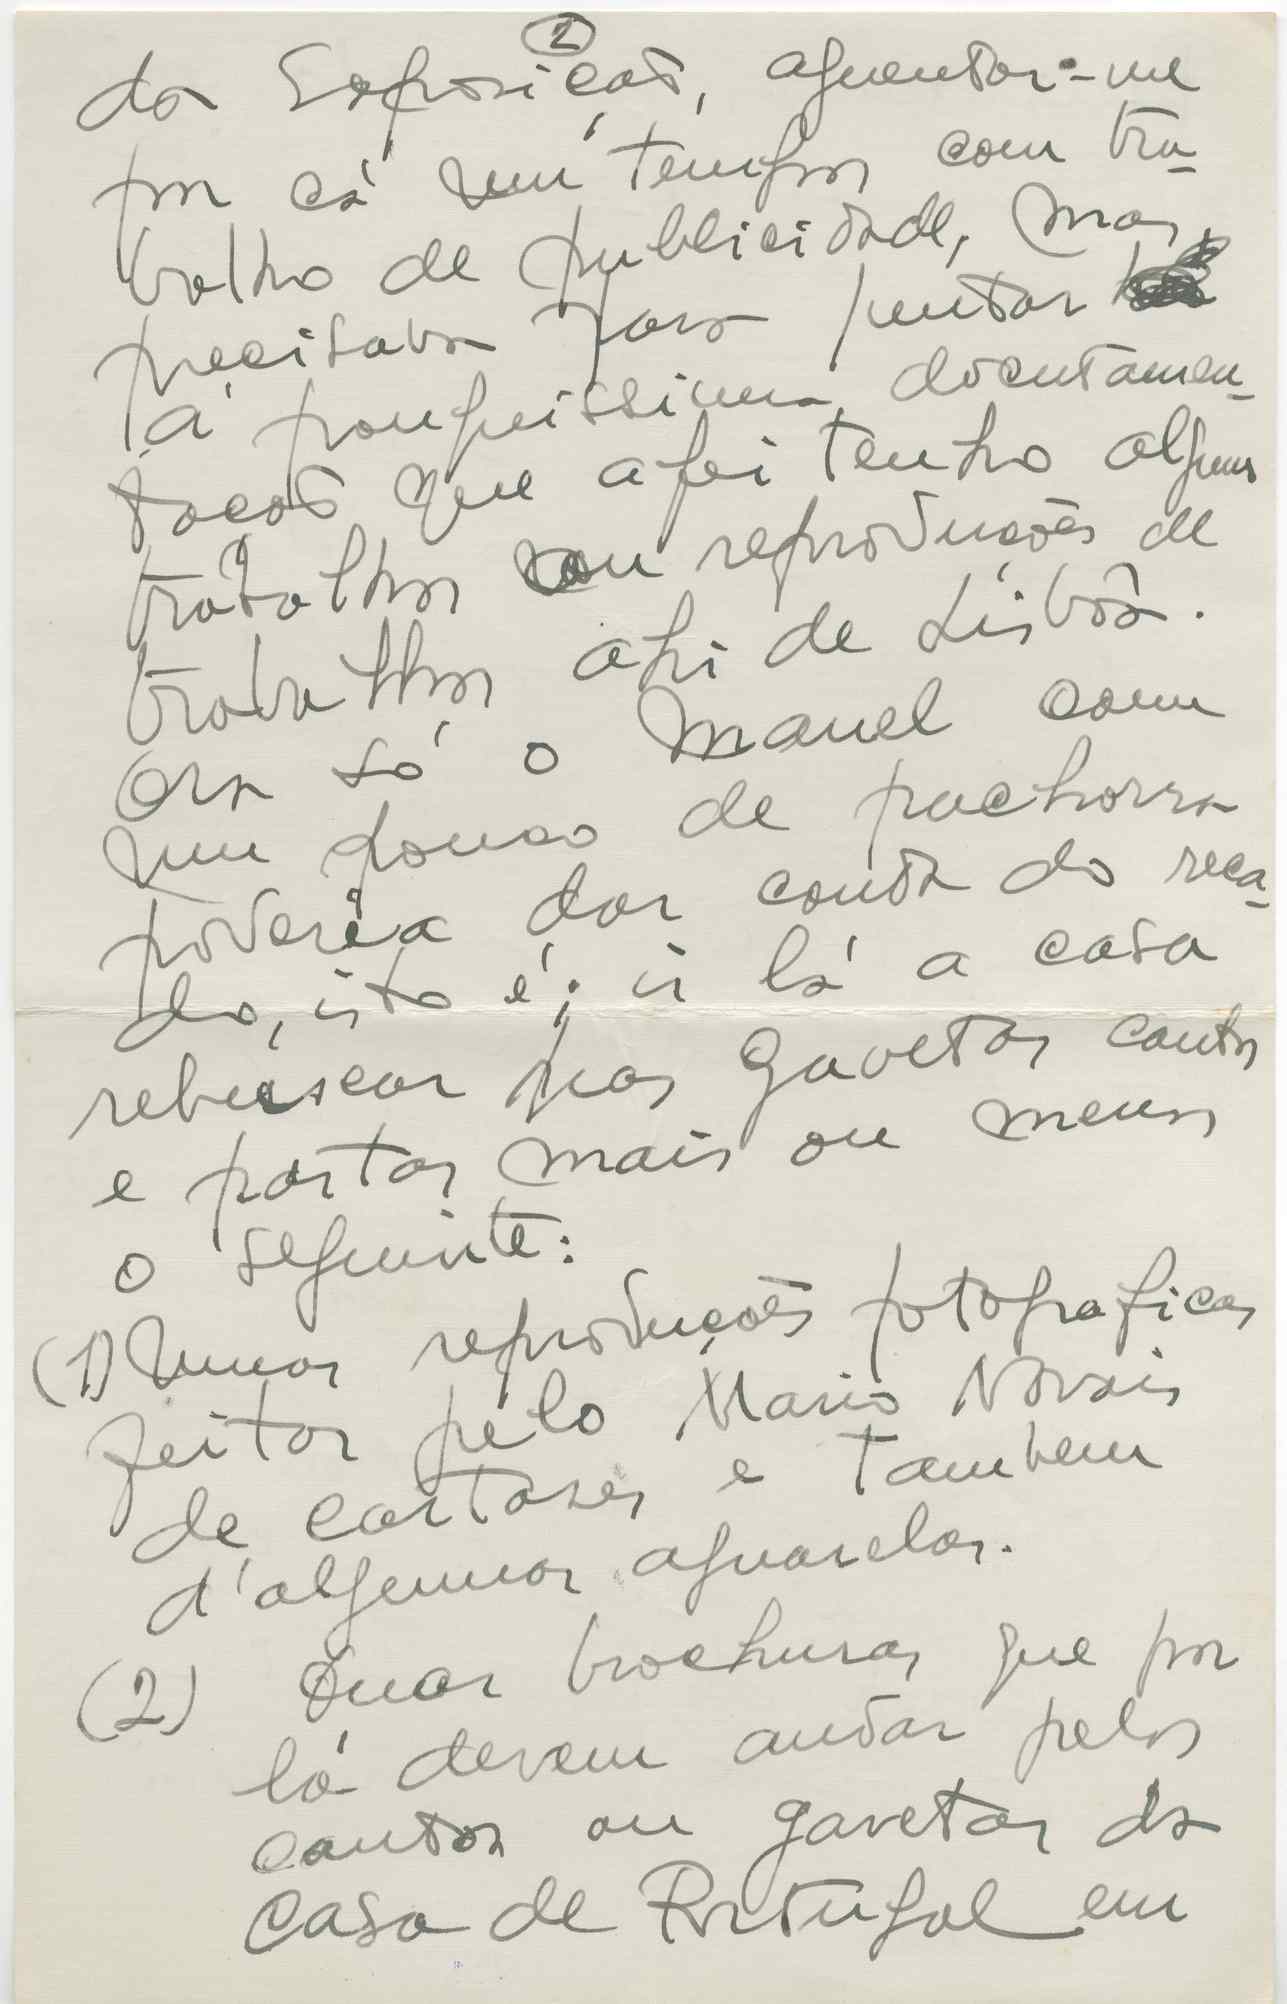 2
da Exposição, aguentar-me
por cá um tempo com tra-
balho de publicidade, mas
precisava para juntar
á pouquissima documen-
tação que aqui tenho alguns
trabalhos ou reproduções de
trabalhos ahi de Lisbôa.
Ora só o Manel com
um pouco de pachorra
poderia dar conta do reca-
do, isto é; ir lá a casa
rebuscar nas gavetas cantos
e pastas mais ou menos
o seguinte:
(1) Umas reproduções fotograficas
feitas pelo Mario Novais
de cartazes e tambem
d'algumas aguarelas.
(2) Duas brochuras que por
lá devem andar pelos
cantos ou gavetas da
Casa de Portugal em